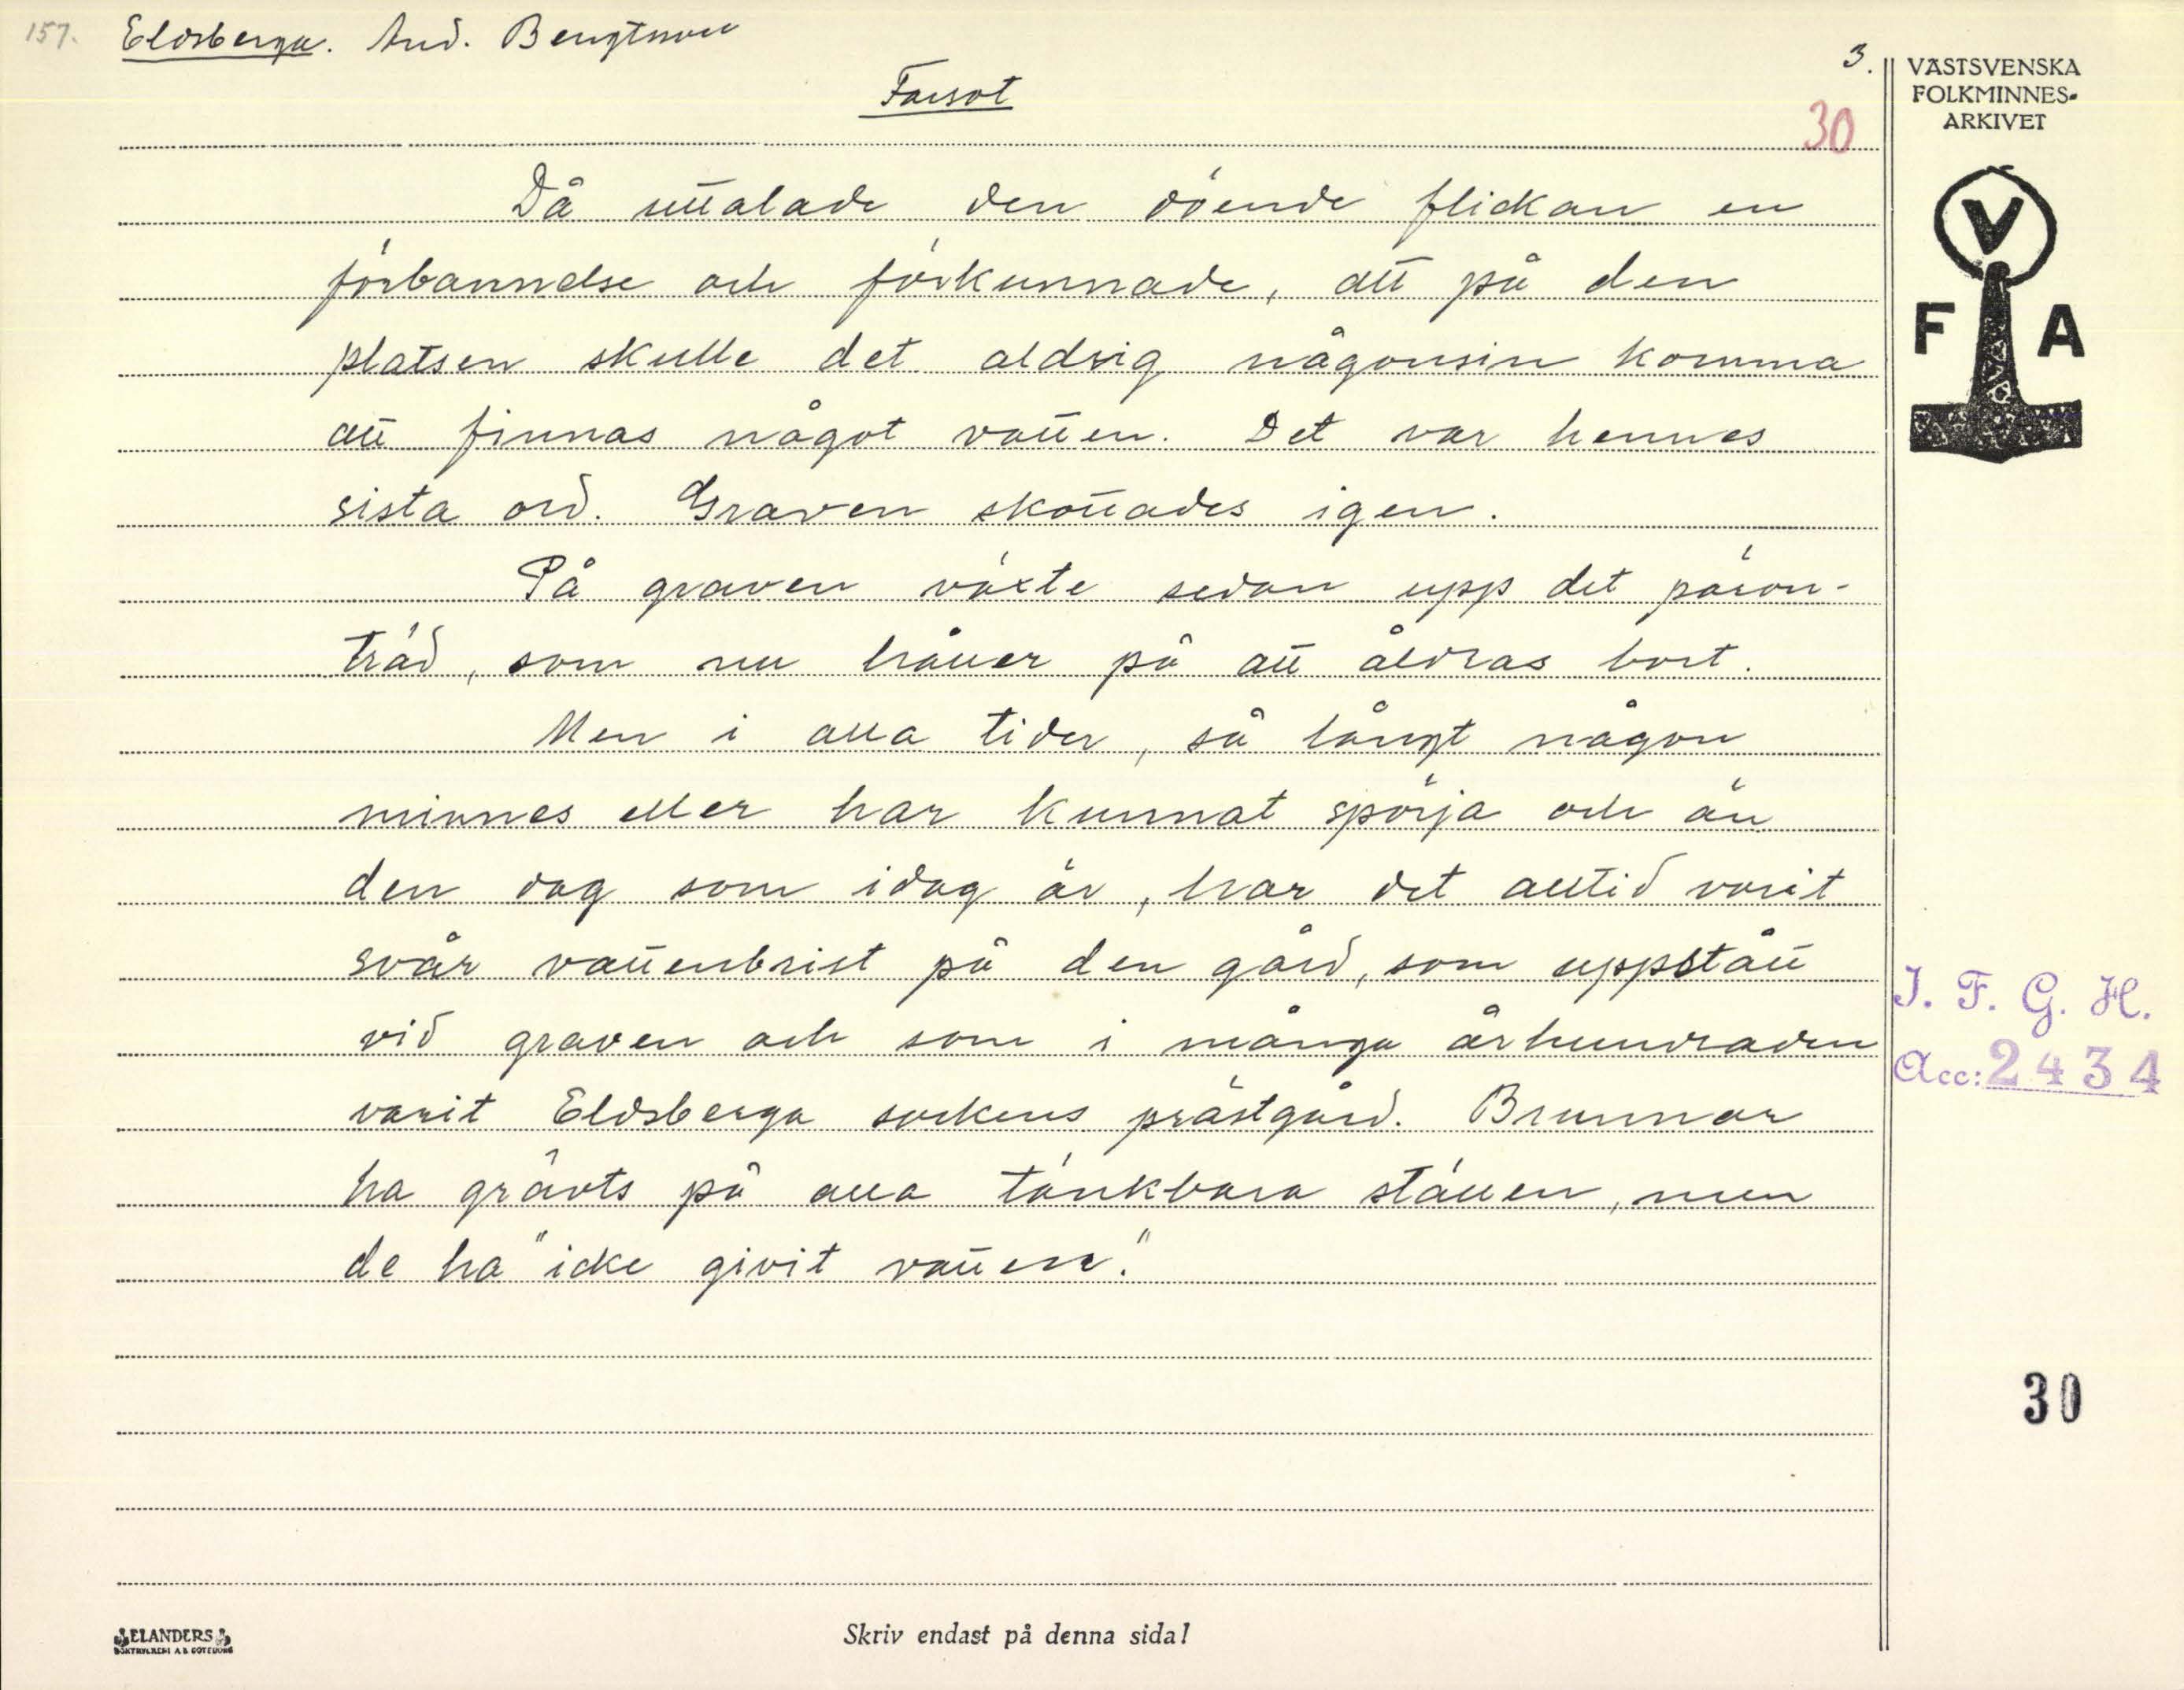 157. Eldsberga. And. Bengtsson
3.
Farsot
30
Då uttalade den döende flickan en
förbannelse och förkunnade, att på den
platsen skulle det aldrig någonsin komma
att finnas något vatten. Det var hennes
sista ord. Graven skottades igen.
På graven växte sedan upp det päron-
träd, som nu håller på att åldras bort.
Men i alla tider, så långt någon
minnes eller har kunnat spörja och än
den dag som idag är, har det alltid varit
svår vattenbrist på den gård, som uppstått
vid graven och som i många århundraden
varit Eldsberga sockens prästgård. Brunnar
ha grävts på alla tänkbara ställen, men
de ha "icke givit vatten."
VÄSTSVENSKA
FOLKMINNES-
ARKIVET
V
F A
I. F. G. H.
Acc: 2434
30
ELANDERS
BOKTRYCKERI A.B. GÖTEBORG
Skriv endast på denna sida!